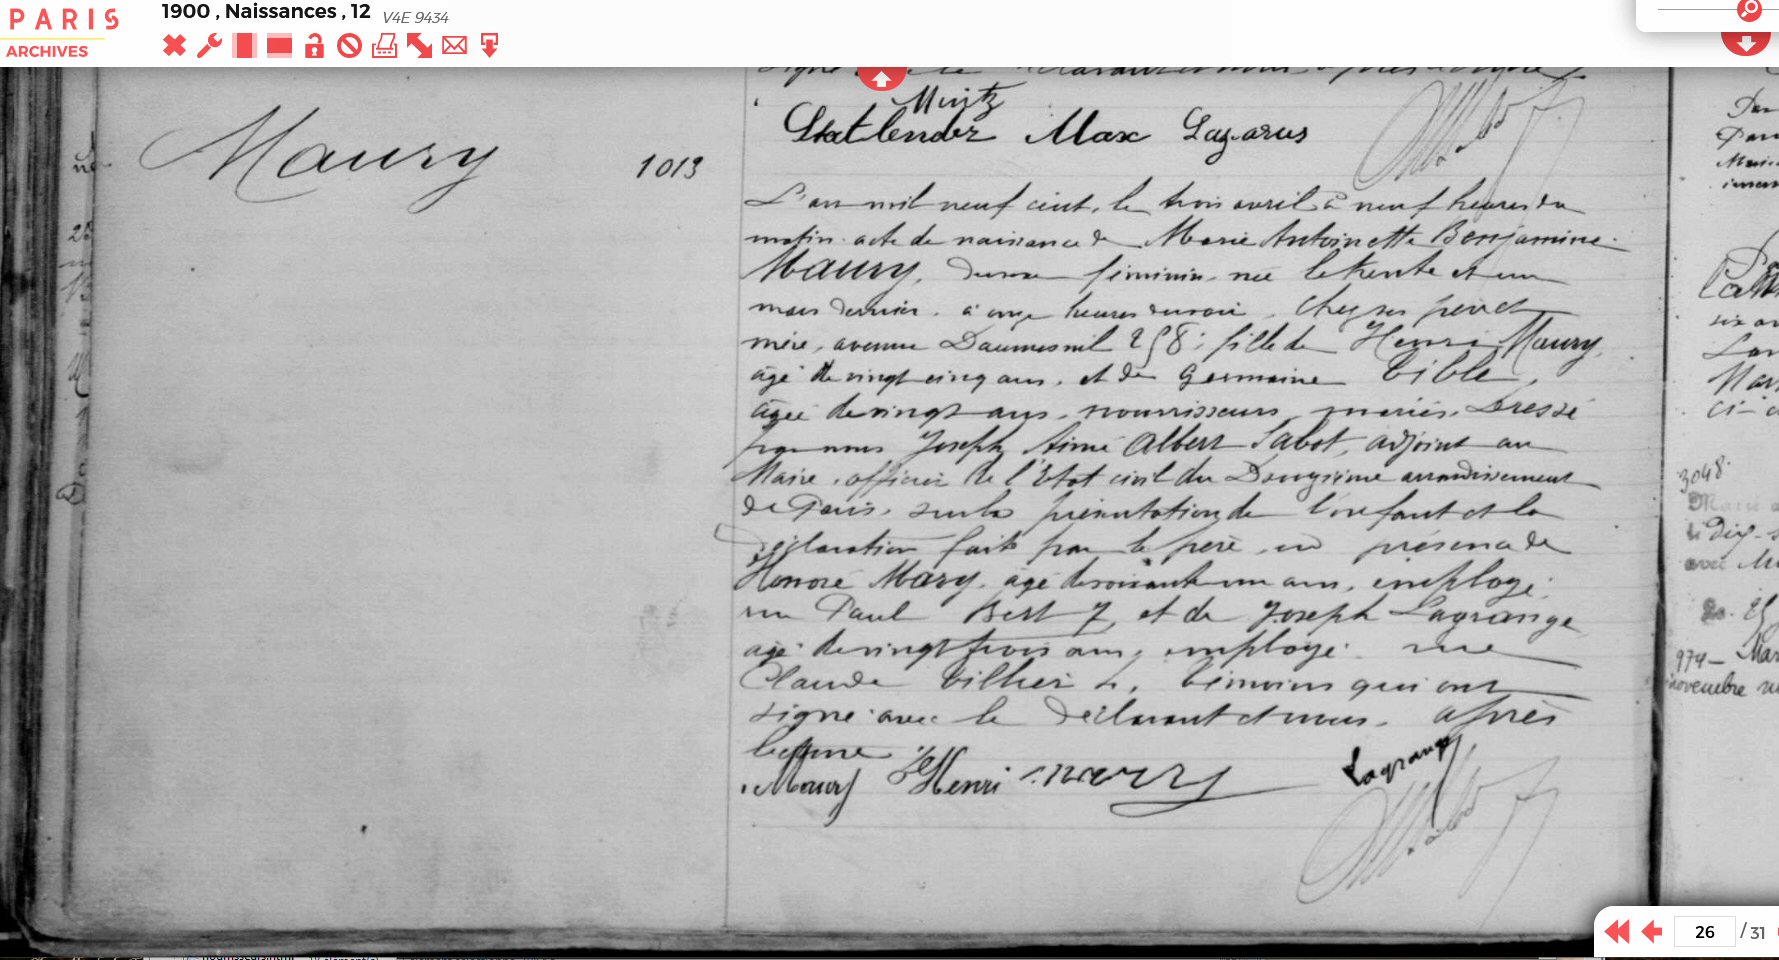 PARIS
ARCHIVES
1900 , Naissances , 12 V4E 9434
Muntz
Max Lazarus
Maury 1013
L'an mil neuf cent, le trois avril à neuf heures du
matin acte de naissance de Marie Antoinette Benjamine
Maury, du sexe féminin, née le trente et un
mars dernier, à onze heures du soir, chez ses père et
mère, avenue Daumesnil 258; fille de Henri Maury,
âgé de vingt cinq ans, et de Germaine
âgée de vingt ans, nourrisseurs, mariés. Dressé
par nous Joseph Aimé Albert Sabot, adjoint au
Maire, officier de l'état civil du Douzième arrondissement
de Paris, sur la présentation de l'enfant et la
déclaration faite par le père, en présence de
Honoré Maury, âgé de soixante un ans, employé,
rue Paul Bert 7, et de Joseph Lagrange
âgé de vingt trois ans, employé, rue
Claude Villier témoins qui ont
signé avec le déclarant et nous, après
lecture
Maury Henri Maury Lagrange
3048
974
novembre
26 / 31